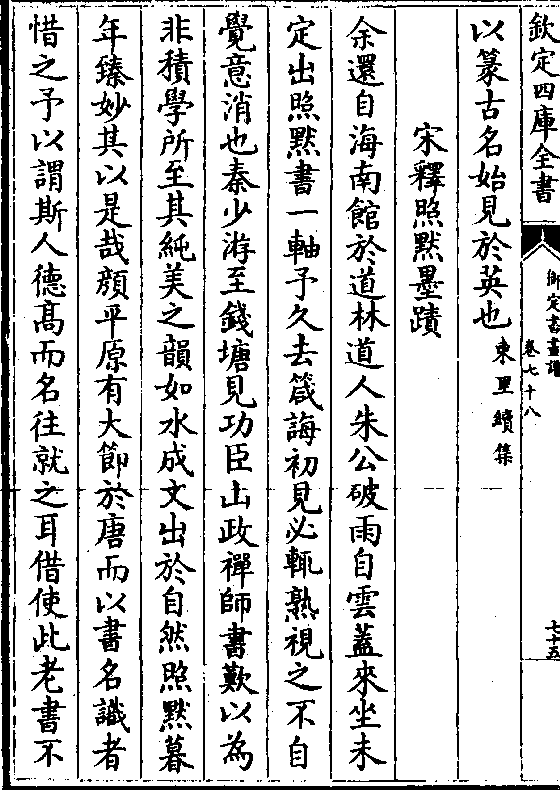 欽定四庫全書
御定書畫譜
卷七十八
七十五
以篆古名始見於英也東里續集
宋釋照默墨蹟
余還自海南館於道林道人朱公破雨自雲蓋來坐未
定出照默書一軸予久去箴誨初見必輒熟視之不自
覺意消也秦少游至錢塘見功臣山政禪師書歎以為
非積學所至其純美之韻如水成文出於自然照默暮
年臻妙其以是哉顔平原有大節於唐而以書名識者
惜之予以謂斯人德髙而名往就之耳借使此老書不